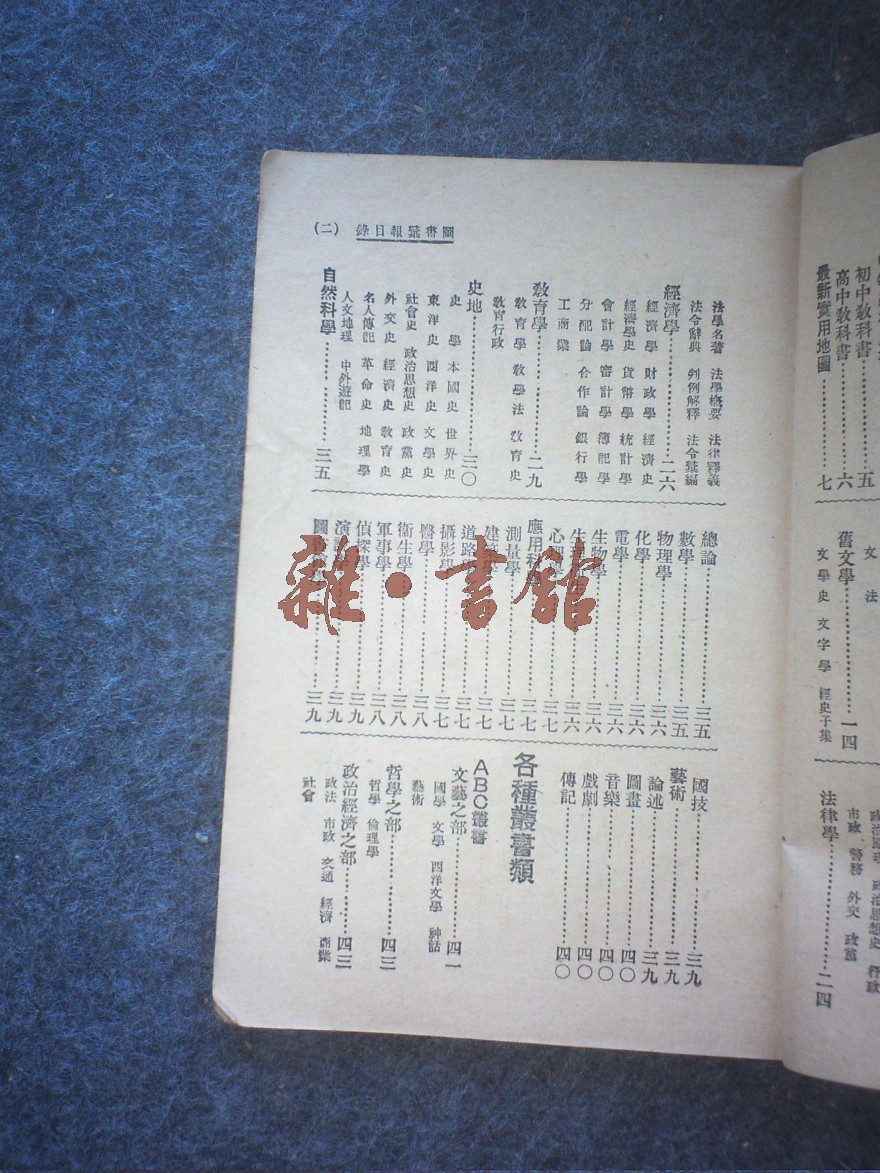 圖書彙報目錄 (二)
法學名著 法學概要 法律釋義
法令辭典 判例解釋 法令彙編
經濟學……二六
經濟學 財政學 經濟史
經濟學史 貨幣學 統計學
會計學 審計學 簿記學
分配論 合作論 銀行學
工商業
教育學……二九
教育學 教學法 教育史
教育行政
史地……三〇
史學 本國史 世界史
東洋史 西洋史 文學史
社會史 政治思想史 政黨史
外交史 經濟史 教育史
名人傳記 革命史 地理學
人文地理 中外遊記
自然科學……三五
總論……三五
數學……三五
物理學……三六
化學……三六
電學……三六
生物學……三六
生理學……三六
心理學……三七
應用科學……三七
測量學……三七
建築學……三七
道路……三七
攝影學……三七
醫學……三八
衞生學……三八
軍事學……三八
偵探學……三九
演說學……三九
圖……三九
國技……三九
藝術……三九
論述……三九
圖畫……四〇
音樂……四〇
戲劇……四〇
傳記……四〇
各種叢書類
ABC叢書
文藝之部……四一
國學 文學 西洋文學 神話
藝術
哲學之部……四三
哲學 倫理學
政治經濟之部……四三
政法 市政 交通 經濟 商業
社會
初中教科書……五
高中教科書……六
最新實用地圖……七
文法
舊文學……一四
文學史 文字學 經史子集
政治思想史 行政
市政 警務 外交 政黨
法律學……二四
雜·書館